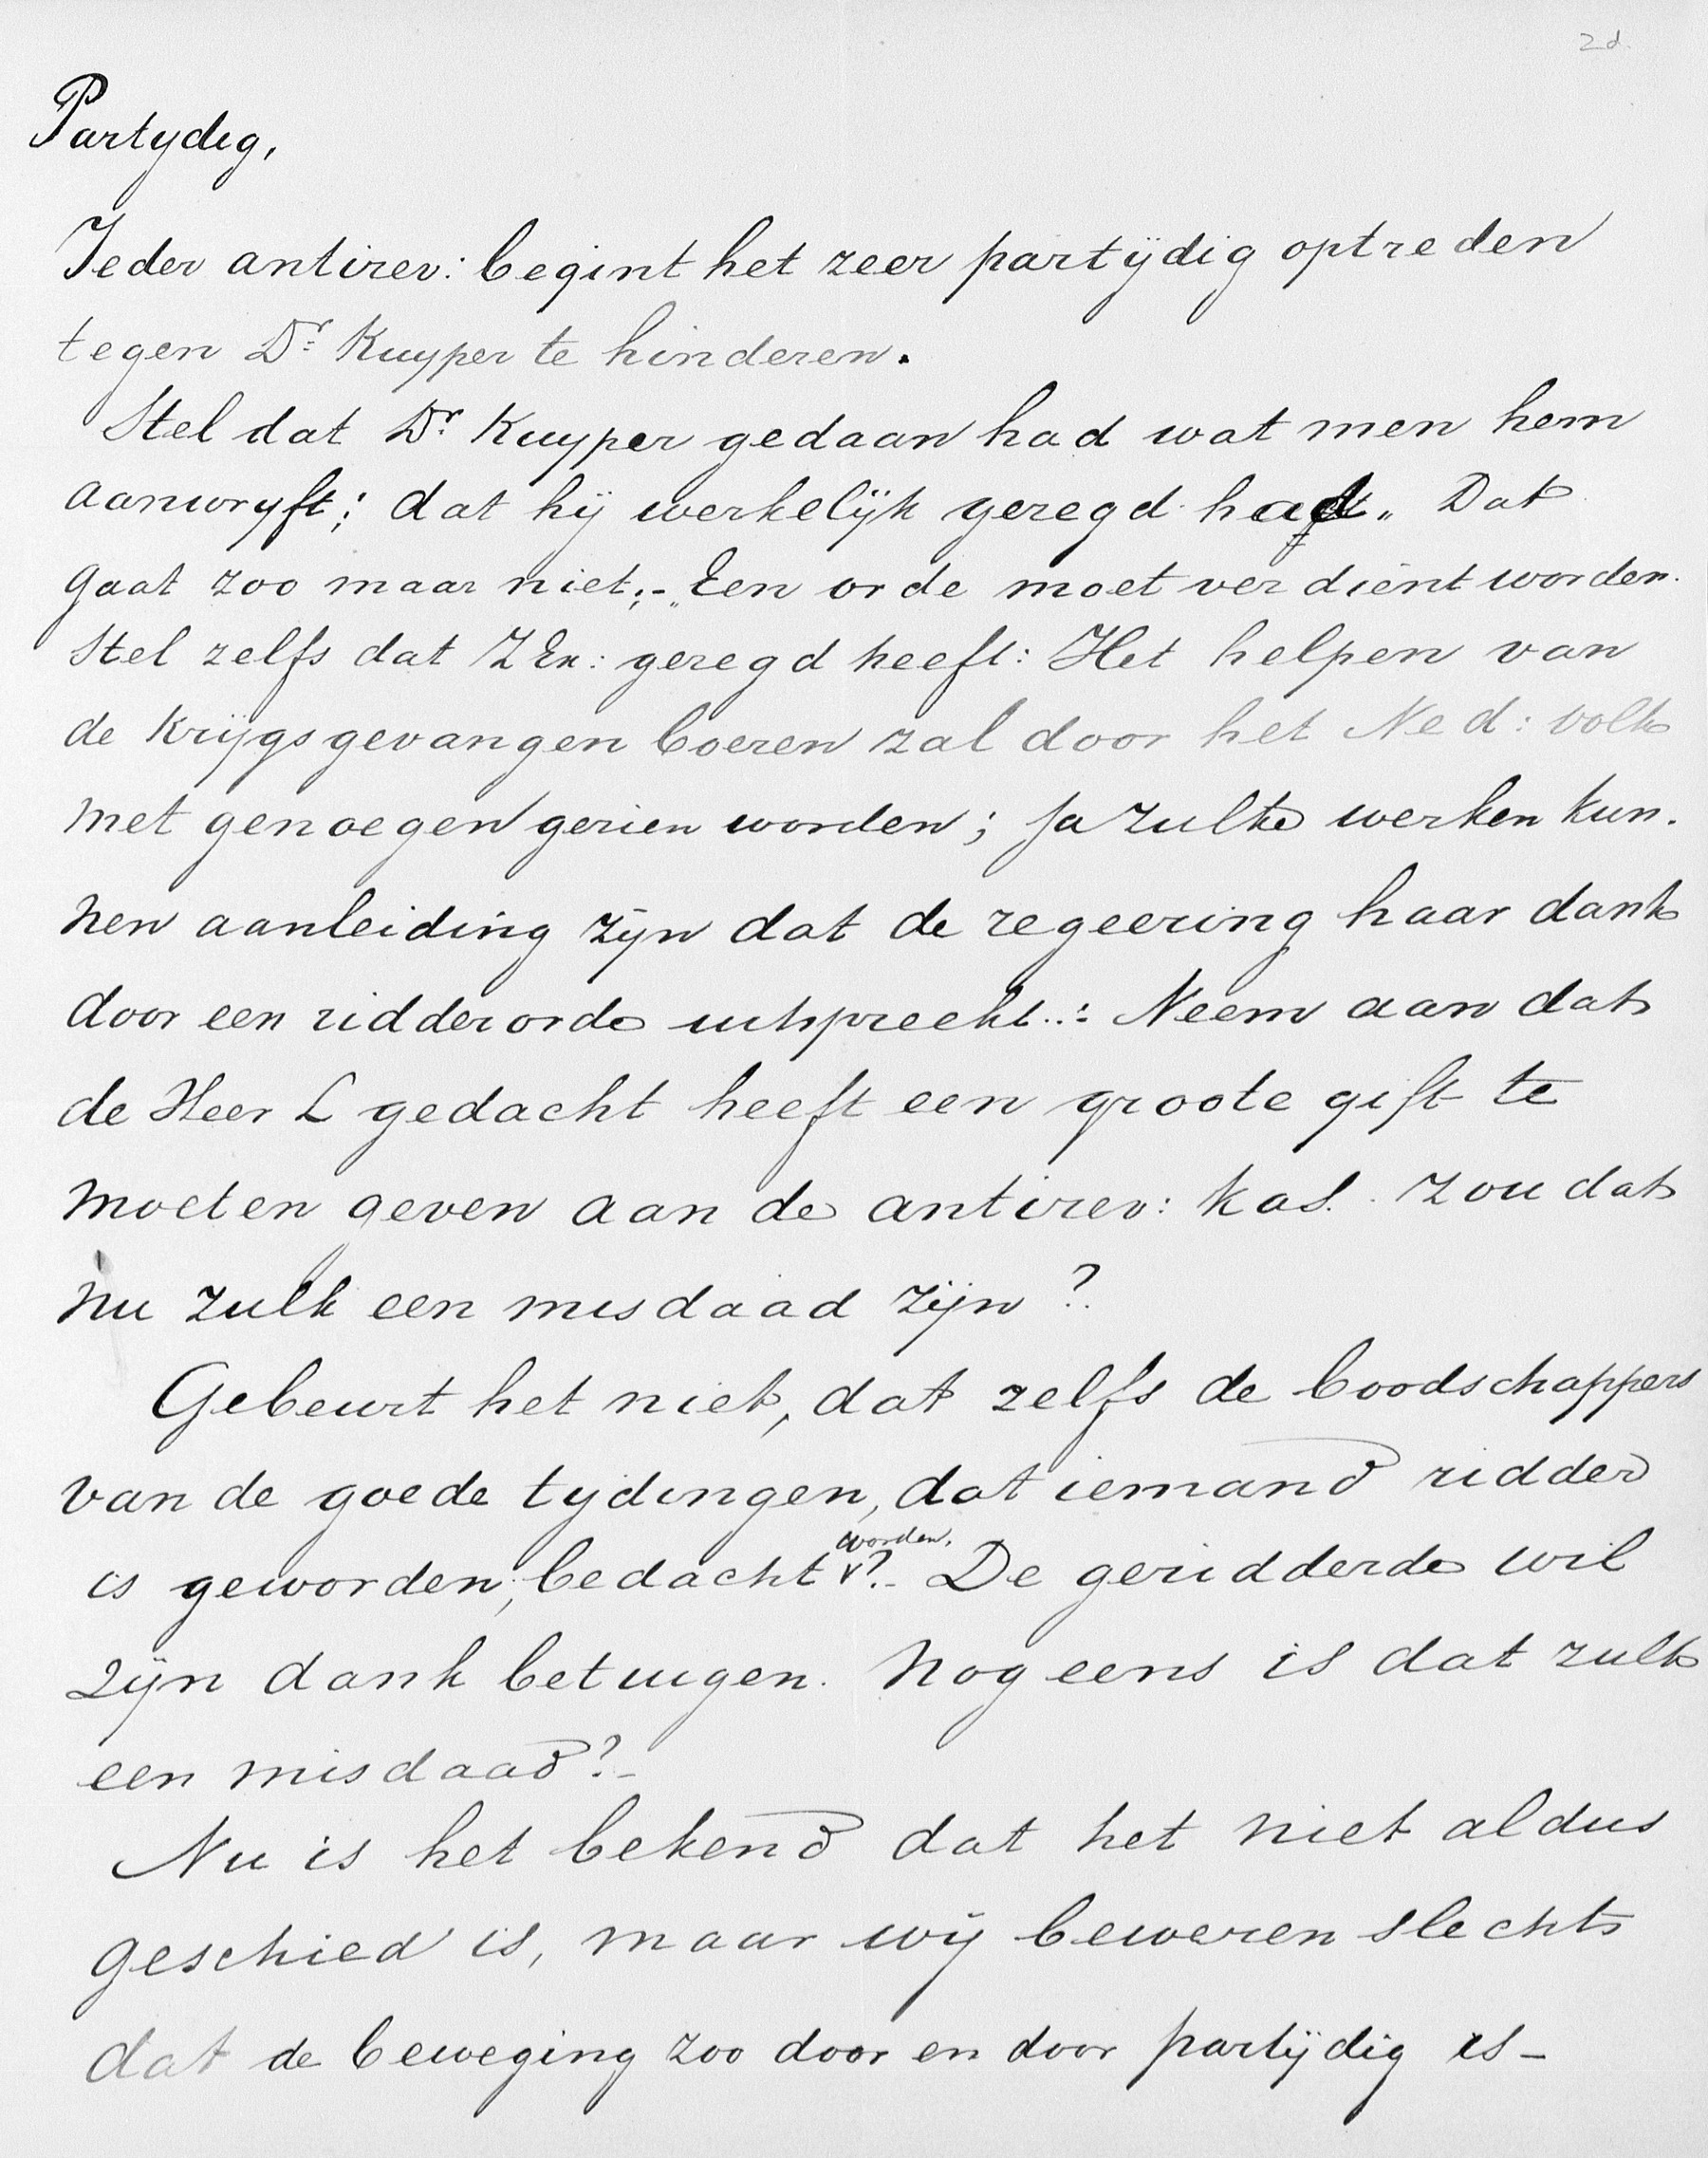 2d.
Partydig,
Ieder antirev: begint het zeer partijdig optreden
tegen Dr Kuyper te hinderen.
Stel dat Dr Kuyper gedaan had wat men hem
aanwryft; dat hij werkelijk gezegd had „ Dat
gaat zoo maar niet;- „Een orde moet verdient worden.
Stel zelfs dat Z Ex: gezegd heeft: Het helpen van
de krijgsgevangen boeren zal door het Ned: volk
met genoegen gezien worden; ja zulke werken kun-
nen aanleiding zijn dat de regeering haar dank
door een ridderorde uitspreekt..: Neem aan dat
de Heer L gedacht heeft een groote gift te
moeten geven aan de antirev: kas. Zou dat
nu zulk een misdaad zijn?
Gebeurt het niet, dat zelfs de boodschappers
van de goede tydingen, dat iemand ridder
is geworden, bedacht worden.?- De geridderde wil
zijn dank betuigen. Nog eens is dat zulk
een misdaad?-
Nu is het bekend dat het niet aldus
geschied is, maar wij beweren slechts
dat de beweging zoo door en door partijdig is-